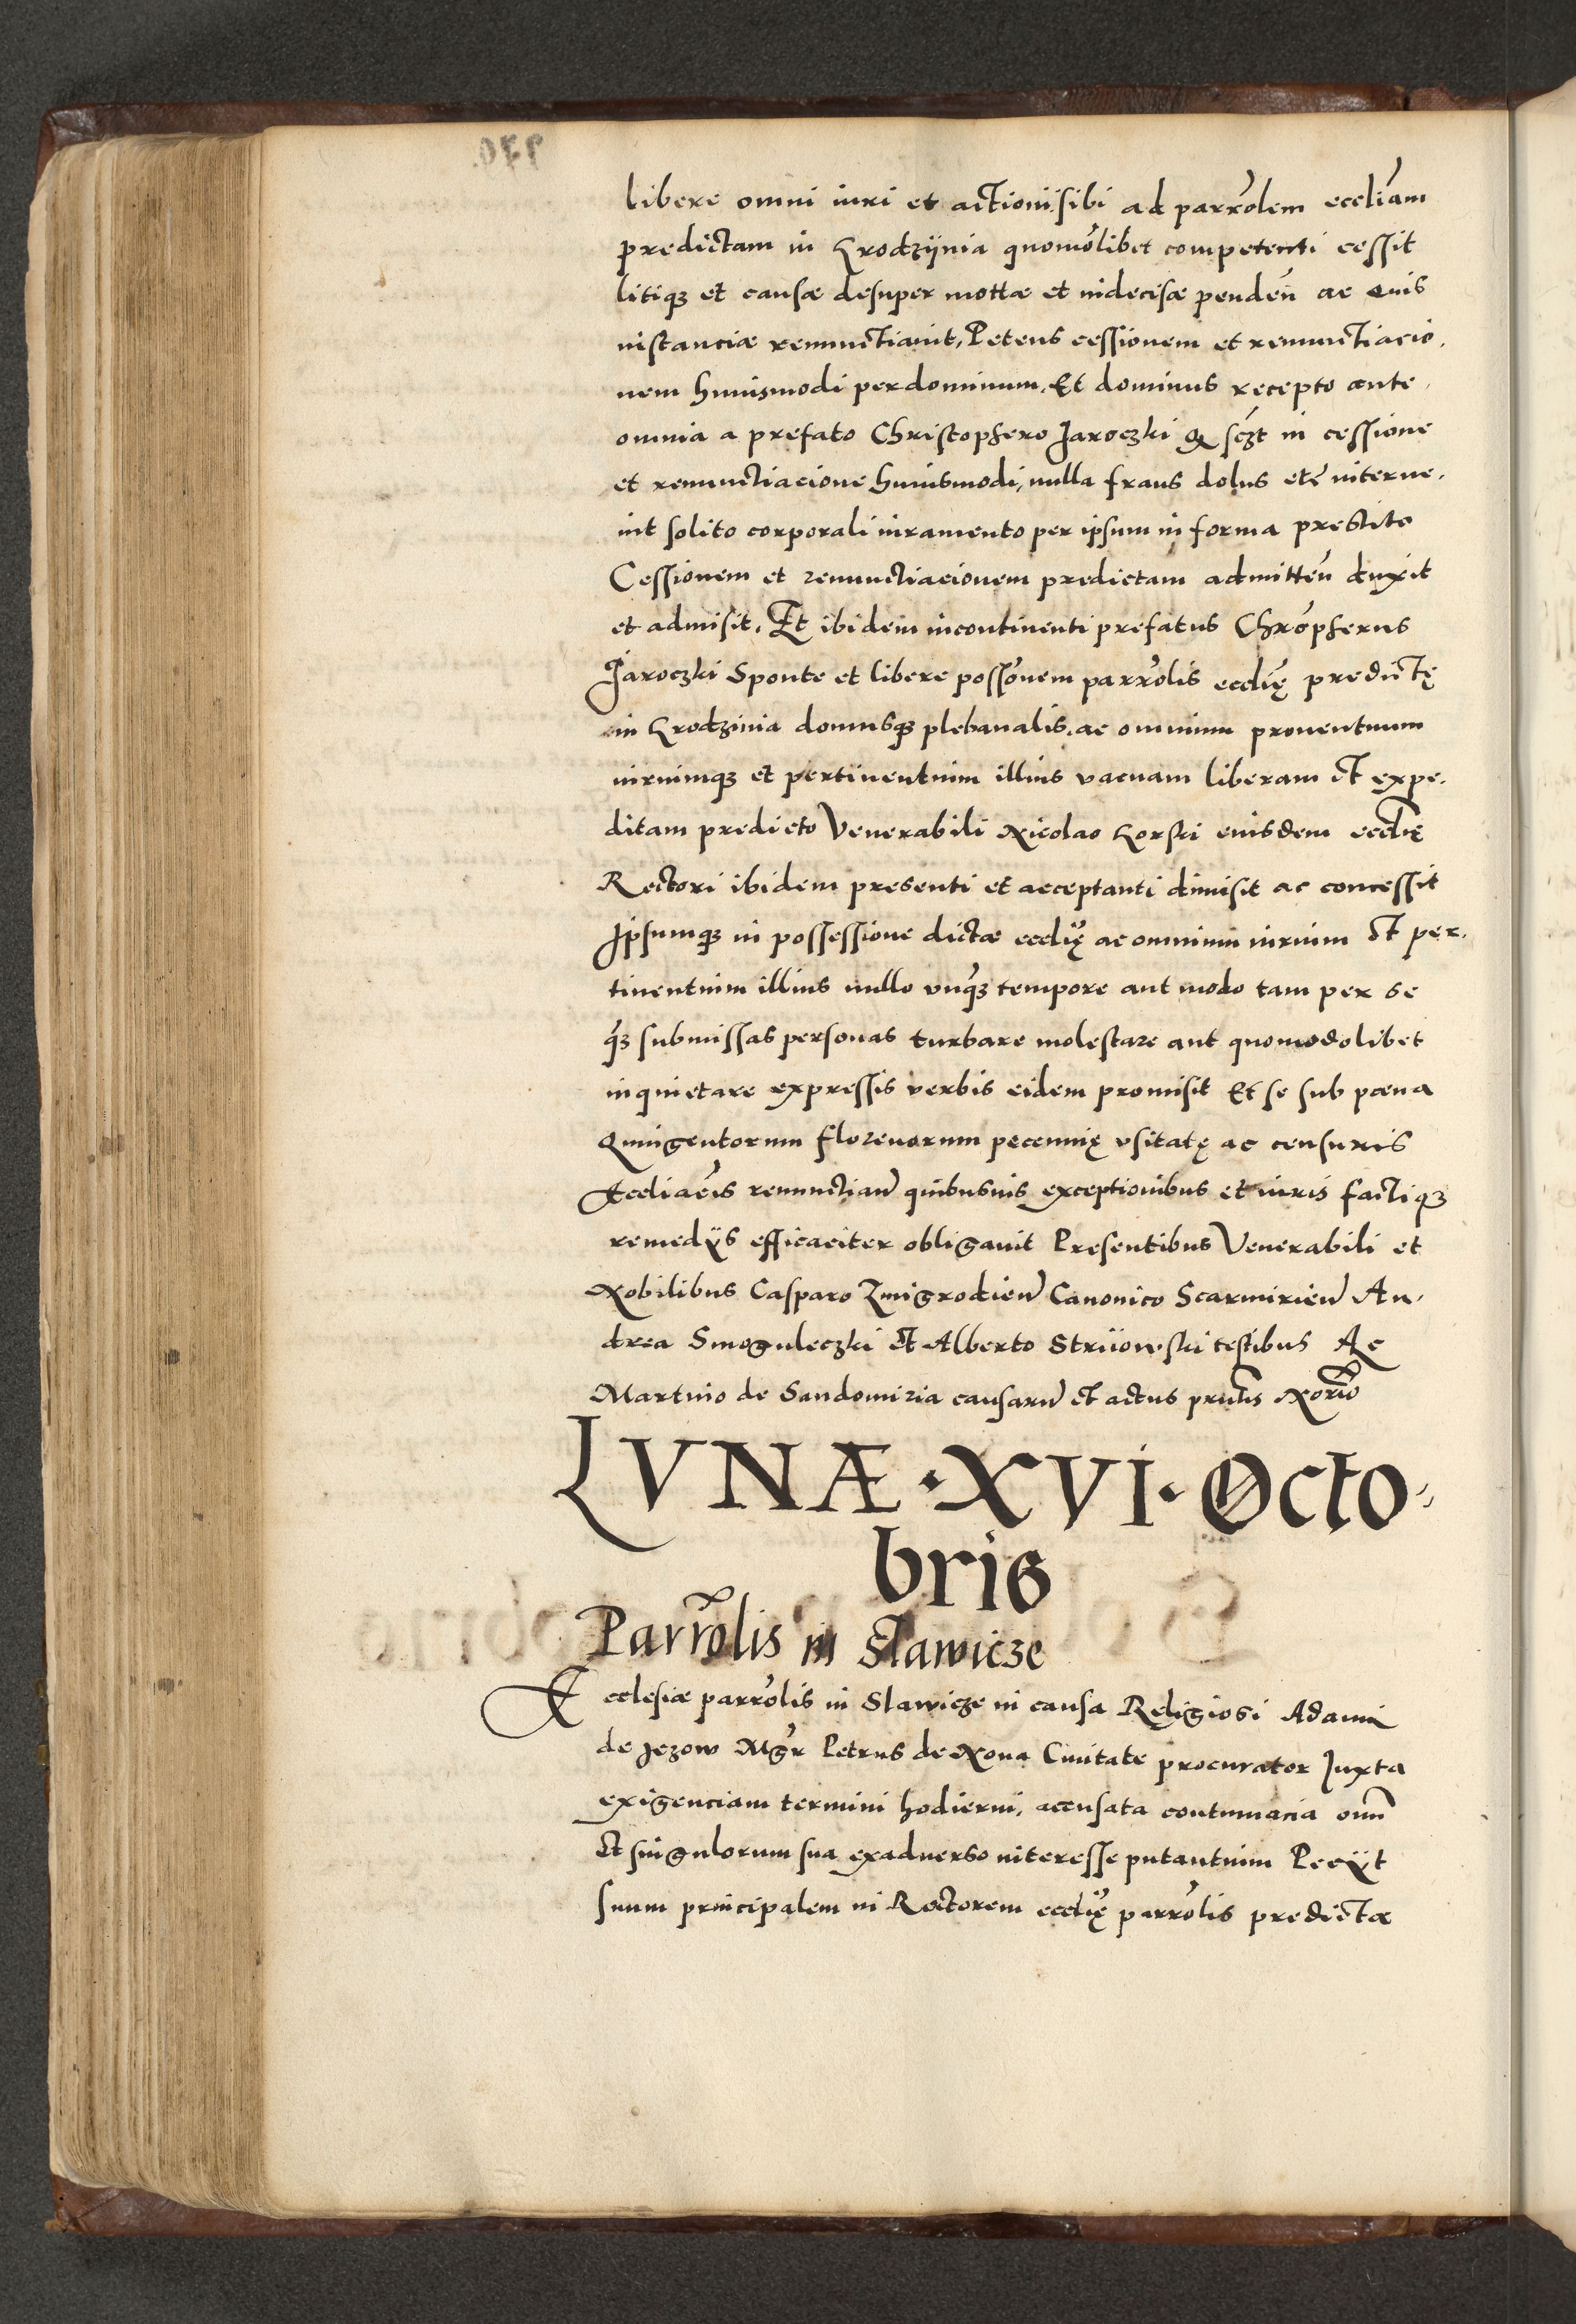 libere omni iuri et actioni sibi ad parr̃olem eccliãm
predictam in Grodzijnia quomõlibet competenti cessit
litiq3 et causæ desuper mottæ et indecisæ penden̄ ac Quis
instanciæ renunctiauit, Petens cessionem et renunctiacio,
nem huiusmodi per dominum. Et dominus recepto ante,
omnia a prefato Christophero Jaroczki q sc3t in cessione
et renunctiacione huiusmodi, nulla fraus dolus etc̃ interue,
nit solito corporali iuramento per ipsum in forma prestito
Cessionem et renunctiacionem predictam admitten̄ duxit
et admisit. Et ibidem incontinenti prefatus Chrõpherus
Jaroczki Sponte et libere possõnem parr̃olis ecclię predictę
in Grodzinia domusq3 plebanalis, ac omnium prouentuum
iuriumq3 et pertinentium illius vacuam liberam et expe,
ditam predicto Venerabili Nicolao Gorski eiusdem ecclię
Rectori ibidem presenti et acceptanti dimisit ac concessit
Ipsumq3 in possessione dictæ ecclię ac omnium iurium et per,
tinentium illius nullo vnq̃3 tempore aut modo tam per se
q̃3 submissas personas turbare molestare aut quomodolibet
inquietare expressis verbis eidem promisit Et se sub pœna
Quingentorum florenorum pecunnię vsitatę ac censuris
Eccliacis renunctian̄ quibusuis exceptionibus et iuris factiq3
remedijs efficaciter obligauit Presentibus Venerabili et
Nobilibus Casparo Zmigrodien̄ Canonico Scarmirien̄ An,
drea Smoguleczki Et Alberto Strijowski testibus Ac
Martino de Sandomiria causarū et actus prn̄tis Norio
LVNÆ · XVI · Octo,
bris
Parr̃olis in Slawicze
Ecclesiæ parr̃olis in Slawicze in causa Religiosi Adami
de Jezow Mgr̃ Petrus de Noua Ciuitate procurator Juxta
exigenciam termini hodierni, accusata contumacia omn̄
et singulorum sua exaduerso interesse putantium Pecijt
suum principalem in Rectorem ecclię parr̃olis predictæ